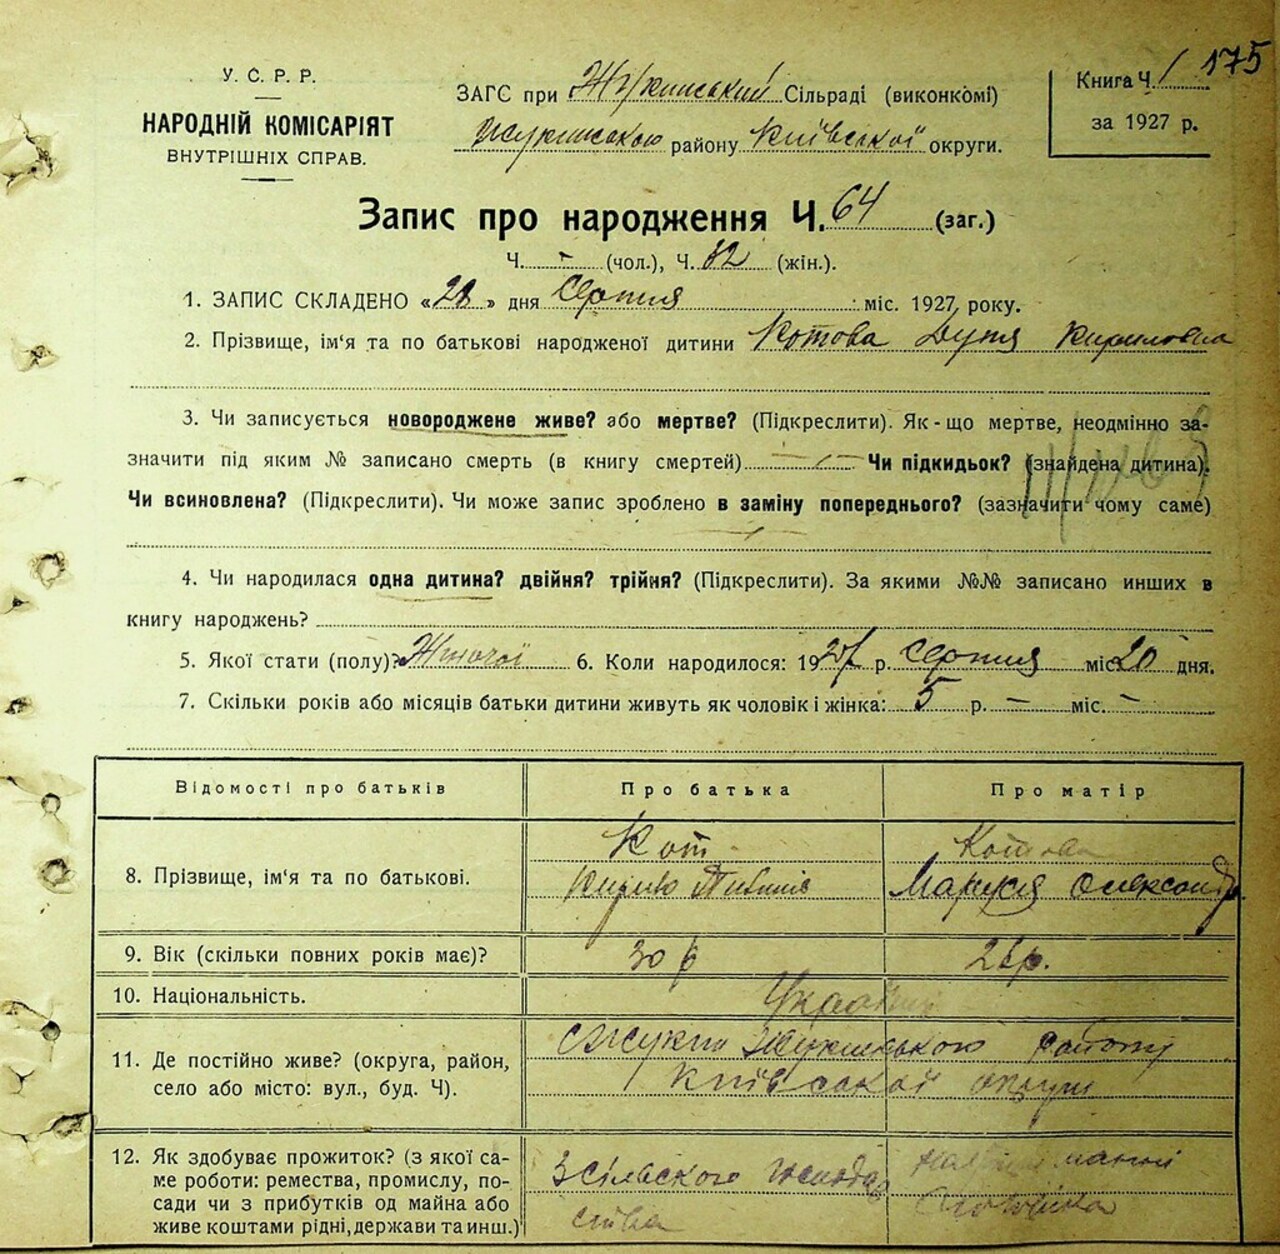 175
У. С. Р. Р.
НАРОДНІЙ КОМІСАРІЯТ
ВНУТРІШНІХ СПРАВ.
ЗАГС при Жукинський Сільраді (виконкомі)
Жукинського району Київської округи.
Книга Ч. 1
за 1927 р.
Запис про народження Ч. 64 (заг.)
Ч. – (чол.), Ч. 32 (жін.).
1. ЗАПИС СКЛАДЕНО «28» дня Серпня міс. 1927 року.
2. Прізвище, ім'я та по батькові народженої дитини Котова Дуня Кириловна
3. Чи записується новороджене живе? або мертве? (Підкреслити). Як-що мертве, неодмінно за-
значити під яким № записано смерть (в книгу смертей) — Чи підкидьок? (знайдена дитина).
Чи всиновлена? (Підкреслити). Чи може запис зроблено в заміну попереднього? (зазначити чому саме)
4. Чи народилася одна дитина? двійня? трійня? (Підкреслити). За якими №№ записано инших в
книгу народжень?
5. Якої стати (полу)? Жіночої 6. Коли народилося: 1927 р. Серпня міс. 20 дня.
7. Скільки років або місяців батьки дитини живуть як чоловік і жінка: 5 р. – міс. –
Відомості про батьків Про батька Про матір
Кот Котова
8. Прізвище, ім'я та по батькові. Кирило Маруся Олександр
9. Вік (скільки повних років має)? 30 р 26 р.
10. Національність. Україн
11. Де постійно живе? (округа, район, с Жукин Жукинського району
село або місто: вул., буд. Ч). Київської округи
12. Як здобуває прожиток? (з якої са-
ме роботи: ремества, промислу, по- З сільского господар
сади чи з прибутків од майна або ства чоловіка
живе коштами рідні, держави та инш.)